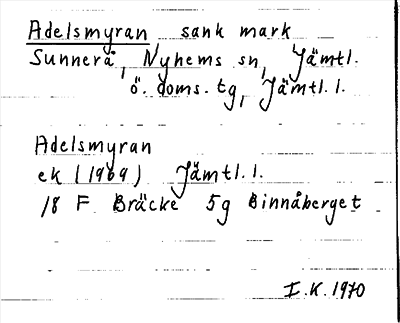 Adelsmyran sank mark
Sunnerå, Nyhems sn, Jämtl.
ö. doms. tg, Jämtl. l.
Adelsmyran
ek (1969) Jämtl. l.
18 F Bräcke 5g Binnåberget
I.K. 1970